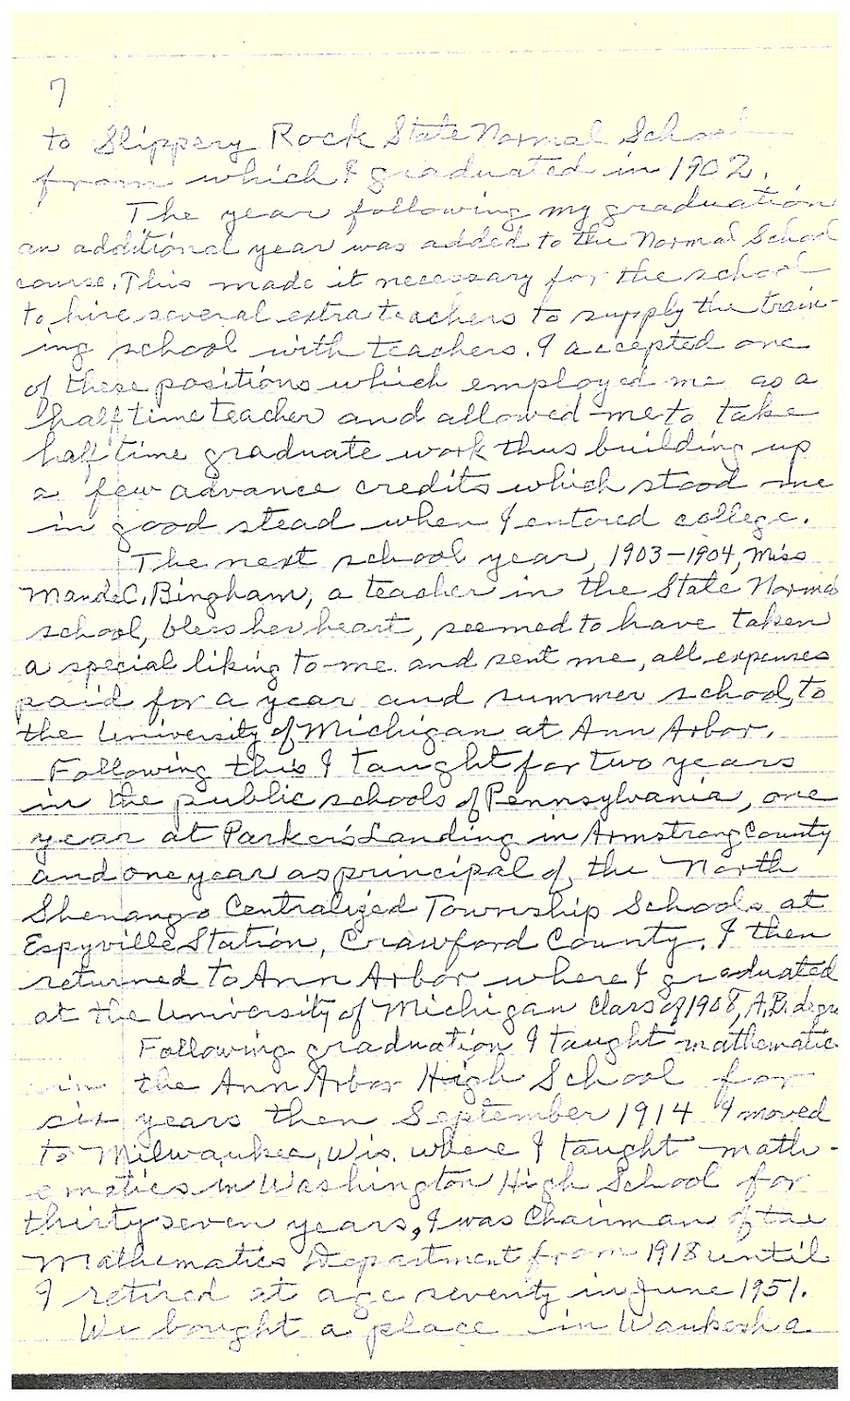 7
to Slippery Rock State Normal School
from which I graduated in 1902.
The year following my graduation
an additional year was added to the Normal School
course. This made it necessary for the school
to hire several extra teachers to supply the train-
ing school with teachers. I accepted one
of these positions which employed me as a
half time teacher and allowed me to take
half time graduate work thus building up
a few advance credits which stood me
in good stead when I entered college.
The next school year, 1903-1904, Miss
Maude C. Bingham, a teacher in the State Normal
school, bless her heart, seemed to have taken
a special liking to me and sent me, all expenses
paid for a year and summer school, to
the University of Michigan at Ann Arbor.
Following this I taught for two years
in the public schools of Pennsylvania, one
year at Parker's Landing in Armstrong County
and one year as principal of the North
Shenango Centralized Township Schools at
Espyville Station, Crawford County. I then
returned to Ann Arbor where I graduated
at the University of Michigan Class of 1908, A.B. degre
Following graduation I taught mathematic
in the Ann Arbor High School for
six years then September 1914 I moved
to Milwaukee, Wis. where I taught math-
ematics in Washington High School for
thirty seven years, I was Chairman of the
Mathematics Department from 1918 until
I retired at age seventy in June 1951.
We bought a place in Waukesha